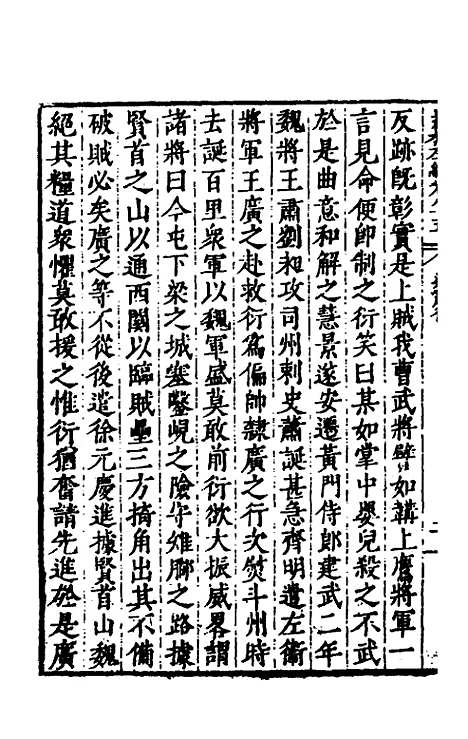 反跡既彰實是上賊我曹武將譬如韝上鷹將軍一
言見命便即制之衍笑曰其如掌中嬰兒殺之不武
於是曲意和解之慧景遂安遷黃門侍郎建武二年
魏將王肅劉昶攻司州刺史蕭誕甚急齊明遣左衛
將軍王廣之赴救衍爲偏帥隷廣之行次熨斗州時
去誕百里衆軍以魏軍盛莫敢前衍欲大振威畧謂
諸將曰今屯下梁之城塞鑿峴之險守雉脚之路據
賢首之山以通西關以臨賊壘三方掎角出其不備
破賊必矣廣之等不從後遣徐元慶進據賢首山魏
絕其糧道衆懼莫敢援之惟衍猶奮請先進於是廣